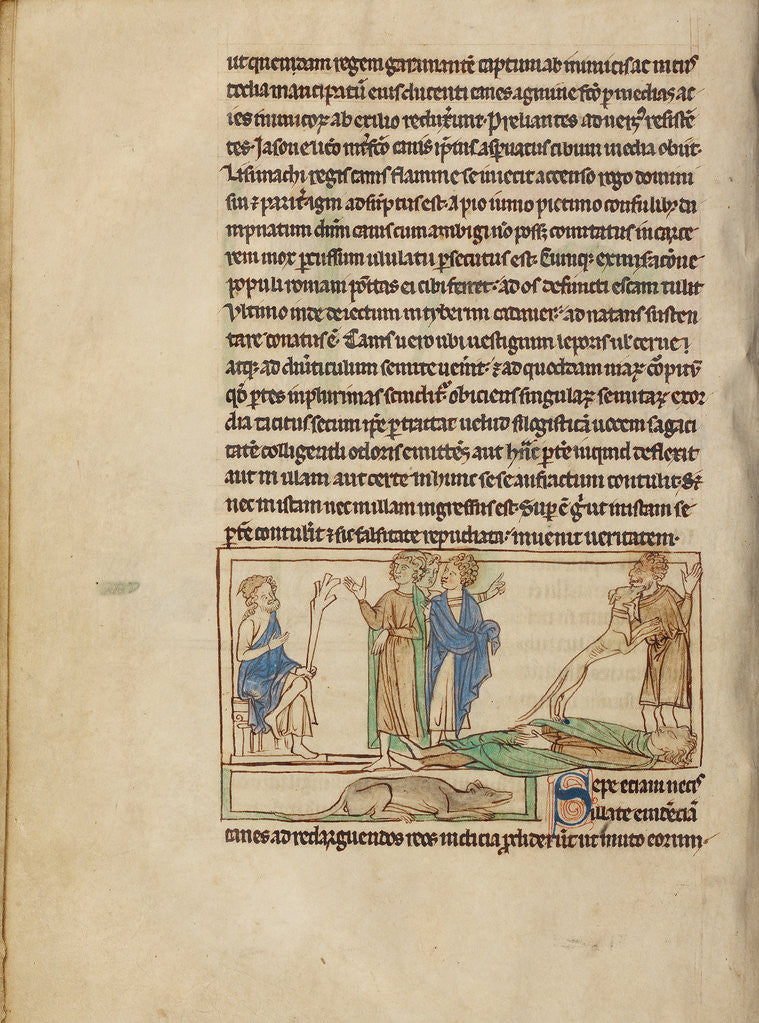 ut quemdam regem garamantē captum ab inimicis ac in cus
todia mancipatū eius ducenti canes agmine fc̄o p medias ac
ies inimicoꝝ ab exilio reduxer̄unt. Preliantes aduerꝰ resistē
tes. Jasone licio int̄fc̄o canis ip̄ius aspnatus cibum inedia obiit.
Lisimachi regis canis flamme se iniecit accenso rogo domini
sui ⁊ parit̾ igni adsūptus est. Apio iunio pictinio consulibꝫ da
mpnatum dn̄m canis cum ambigi nō possꝫ comitatus in carce
rem mox p̄cussum ululatu p̄secutus est. Cumqꝫ ex misatōne
populi romani pōtas ei cibi ferret. ad os defuncti escam tulit
Vltimo inde deiectum in tyberim cadauer. adnatans susten
tare conatus ē. Canis uero ubi uestigium leporis ul̾ cerui
atqꝫ ad diu̾ticulum semite uen̾it. ⁊ ad quoddam uiaꝝ cōpitū
qd̾ p̄tes in plurimas scindit̾. obiciens singulaꝝ semitaꝝ exor
dia tacitus secum ip̄e p̄tractat uelud sillogisticā uocem sagaci
tatē colligendi odoris emittēs aut hāc p̄tē inquid deflexit
aut in illam aut certe in hunc se se anfractum contulit. S;
nec in istam nec in illam ingressus est. Sup̄ ē gͥ ut in istam se
p̄tē contul̾it ⁊ sic falsitate repudiata. inuenit ueritatem.
Sepe eciam necis
illate euidēciā
canes ad redarguendos reos indicia p̄dider̄ūt ut muto eorum